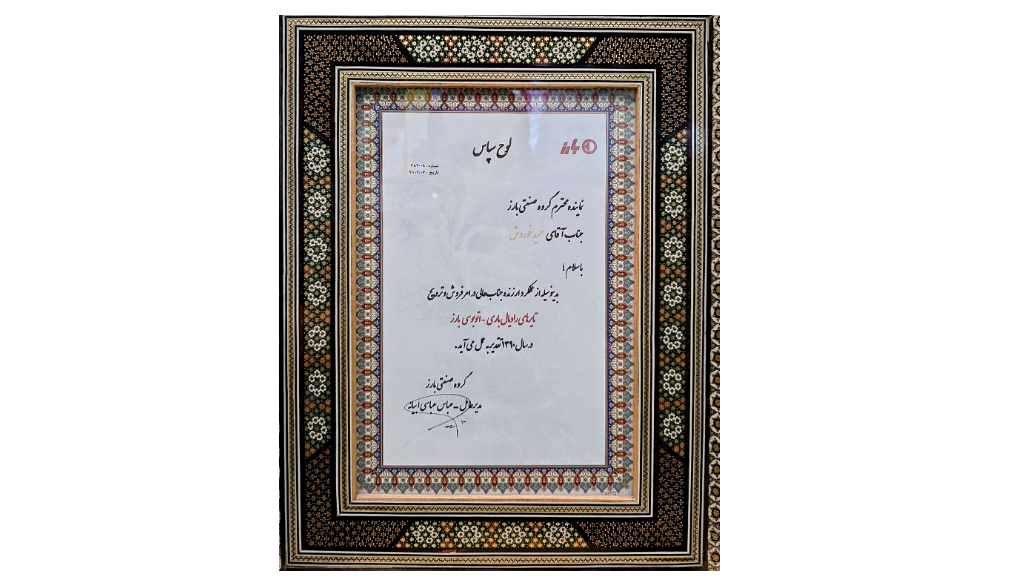 بارز
لوح سپاس
نماینده محترم گروه صنعتی بارز
جناب آقای حمید خوروش
باسلام ؛
بدینوسیله از عملکرد ارزنده جناب عالی در امر فروش و ترویج
تایرهای رادیال باری - اتوبوسی بارز
در سال ۱۳۹۰ تقدیر به عمل می آید.
گروه صنعتی بارز
مدیرعامل - عباس عباسی ابیانه